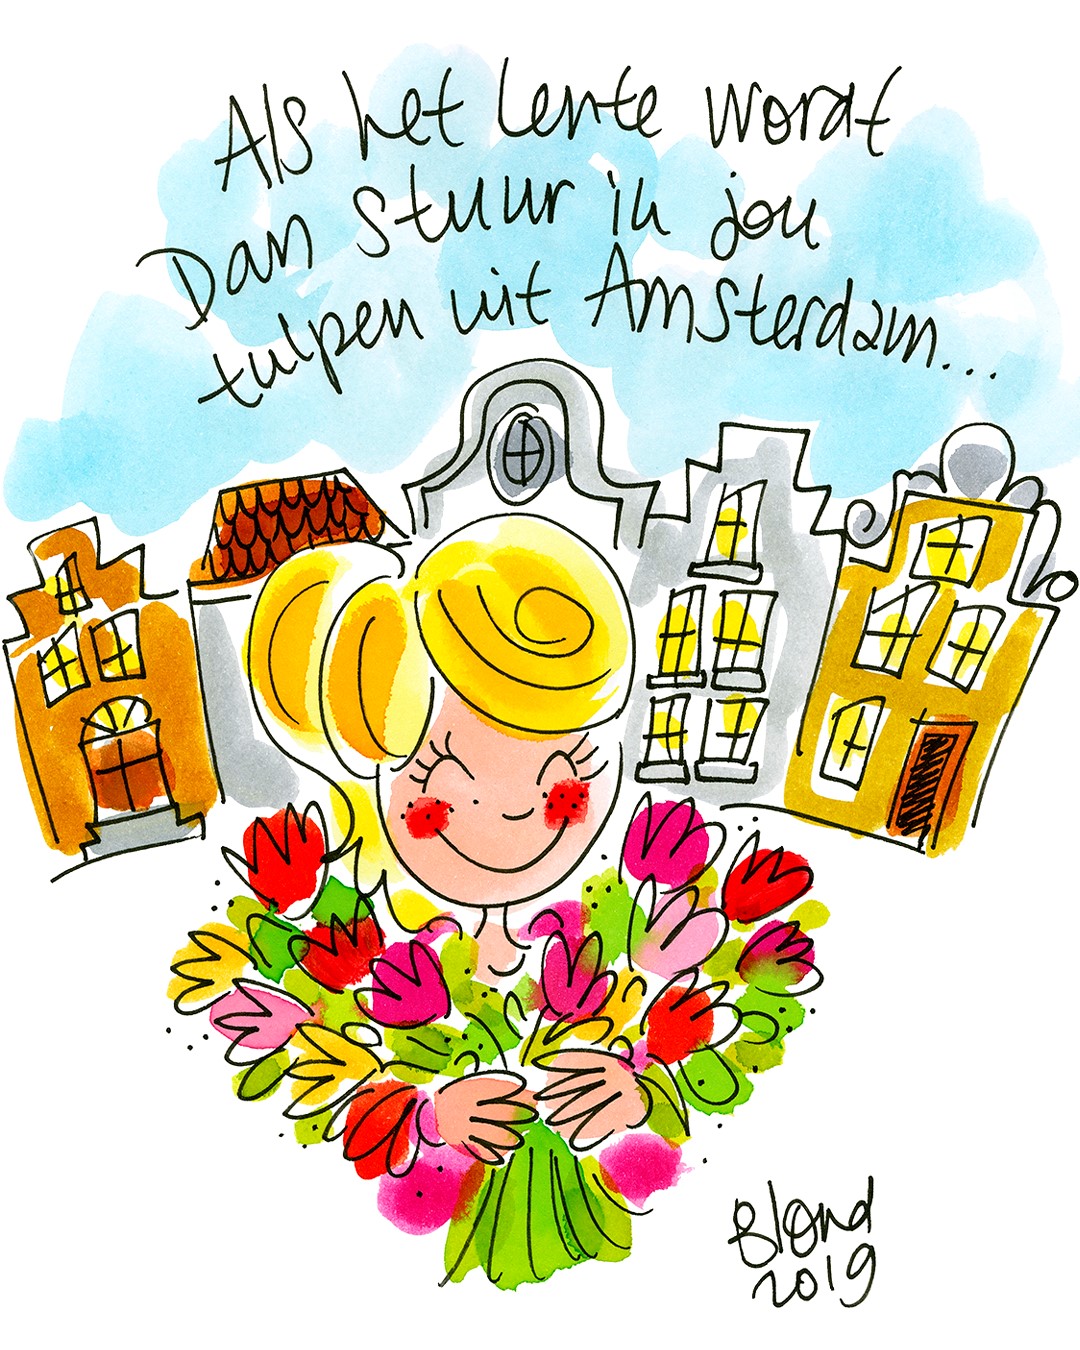 Als het lente wordt
Dan stuur ik jou
tulpen uit Amsterdam...
Blond
2019